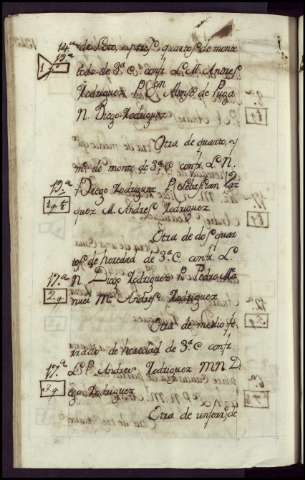 14.ª de Soto, expres.º quartos de monte
15.ª
todo de 3.ª C. confr. L. M. Andres
Rodriguez, P. Alonso de Puga
N. Diego Rodriguez
Otra de quarto, y
m.º de monte de 3.ª C confr. L. N.
15.ª Diego Rodriguez P. Sebastian Vaz
quez M. Andres Rodriguez
Otra de dos quar
tos de heredad de 3.ª C confr. L.
17.ª N. Diego Rodriguez P. Pedro Ma
nuel M. Andres Rodriguez
Otra de medio fe
rrado de heredad de 3.ª C confr.
17.ª L. P. Andres Rodriguez M. N. D
iego Rodriguez
Otra de un ferr.º de